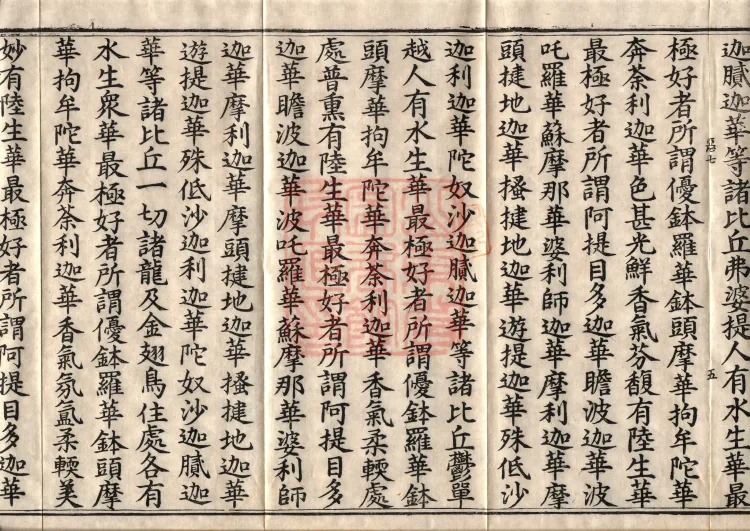 迦膩迦華等諸比丘弗婆提人有水生華最
極好者所謂優鉢羅華鉢頭摩華拘牟陀華
奔荼利迦華色甚光鮮香氣芬馥有陸生華
最極好者所謂阿提目多迦華瞻波迦華波
吒羅華蘇摩那華婆利師迦華摩利迦華摩
頭揵地迦華搔揵地迦華遊提迦華殊低沙
迦利迦華陀奴沙迦膩迦華等諸比丘鬱單
越人有水生華最極好者所謂優鉢羅華鉢
頭摩華拘牟陀華奔荼利迦華香氣柔輭處
處普熏有陸生華最極好者所謂阿提目多
迦華瞻波迦華波吒羅華蘇摩那華婆利師
迦華摩利迦華摩頭揵地迦華搔揵地迦華
遊提迦華殊低沙迦利迦華陀奴沙迦膩迦
華等諸比丘一切諸龍及金翅鳥住處各有
水生衆華最極好者所謂優鉢羅華鉢頭摩
華拘牟陀華奔荼利迦華香氣氛氳柔輭美
妙有陸生華最極好者所謂阿提目多迦華
七
五